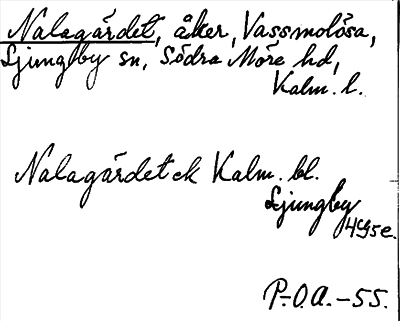 Nalagärdet, åker, Vassmolösa,
Ljungby sn, Södra Möre hd,
Kalm. l.
Nalagärdet ek Kalm. bl.
Ljungby
4G5e.
P.-O.A.-55.